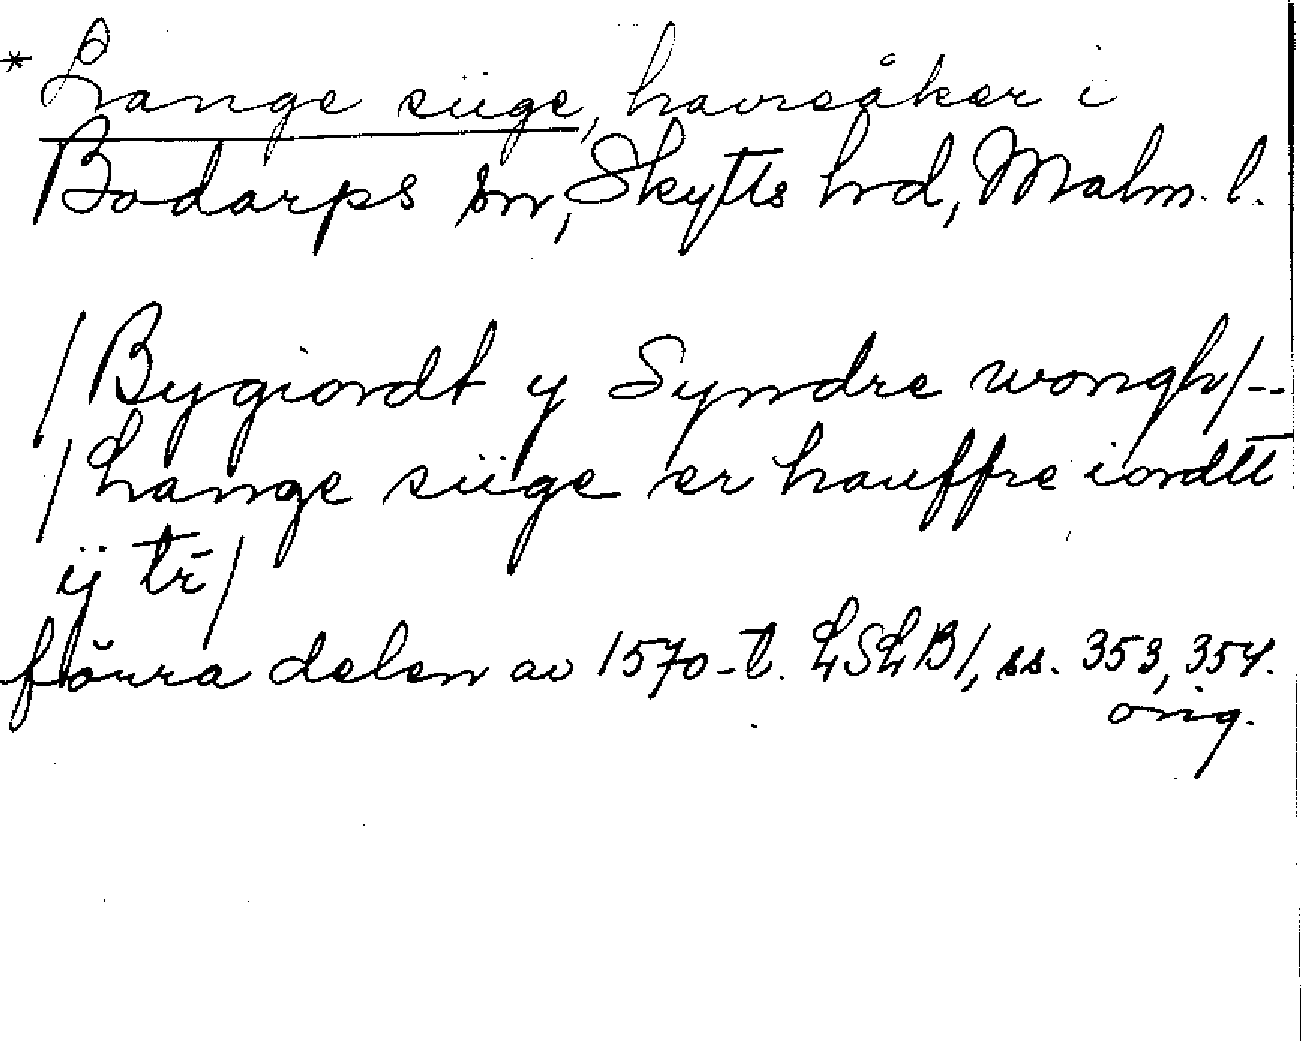 * Lange siige, havreåker i
Bodarps sn, Skytts hrd, Malm. l.
/Bygiordt y Syndre wongh/--
/Lange siige er hauffre iordtt
ij tr̄/
förra delen av 1570-t. LSLB1, ss. 353, 354.
orig.